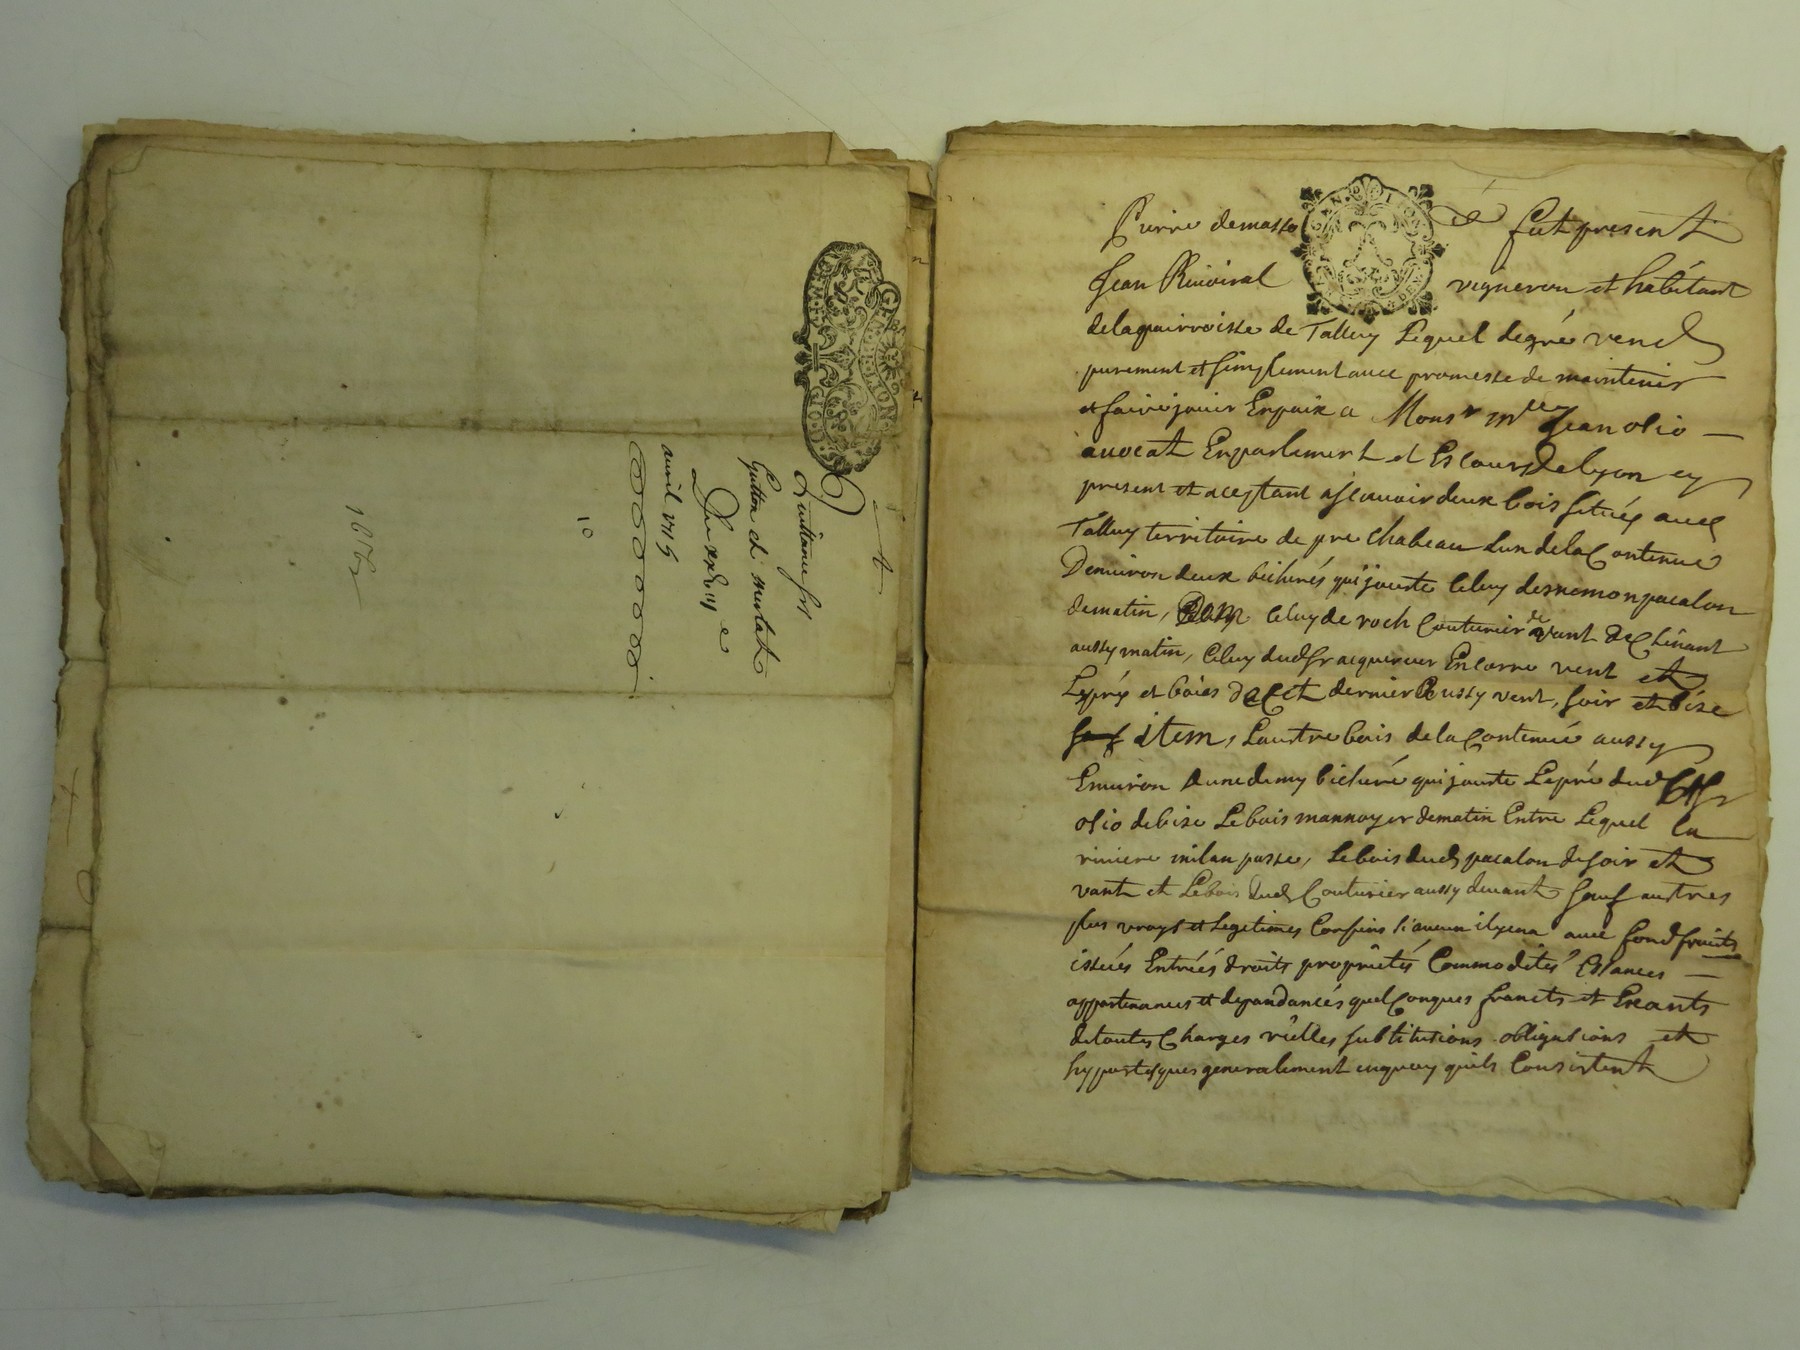 Quittance srs
Gutton et merlat
Du xxviij e
avril 1715
10
Pierre demasso et fut present
Jean Rivoiral vigneron et habitant
delaparroisse de Talluy Lequel degré vend
purement et simplement avec promesse de maintenir
et faire jouir Enpaix a Monsr mre Jean olio
avocat Enparlement et Escours de lyon cy
present et aceptant ascavoir deux bois situés aud
Talluy territoire de pre chabeau Lun dela Contenue
Denviron deux bicherés qui jouxte Celuy de pacalon
dematin, Celuy de roch Couturier de vent declinant
aussy matin, Celuy dudsr acquereur Encorre vent et
Lesprés et bois decet dernier aussy vent, soir et bize
item, Lautre bois dela Contenue aussy
Environ dune demy bicheré qui jouxte Lepré dud sr
olio debize Lebois mannoyer dematin Entre Lequel la
riviere milan passe, Lebois dud pacalon de soir et
vant et Lebois dud Couturier aussy devant sauf autres
plus vrays et Legitimes Confins si aucun ilyena avec fond fruits
issues Entrées droits propriétés Commodités Esances
appartenances et dependances quelconques francts et Exants
detoutes Charges vielles subtitutions obligations et
hyposteques generalement enquoy quils Consistent